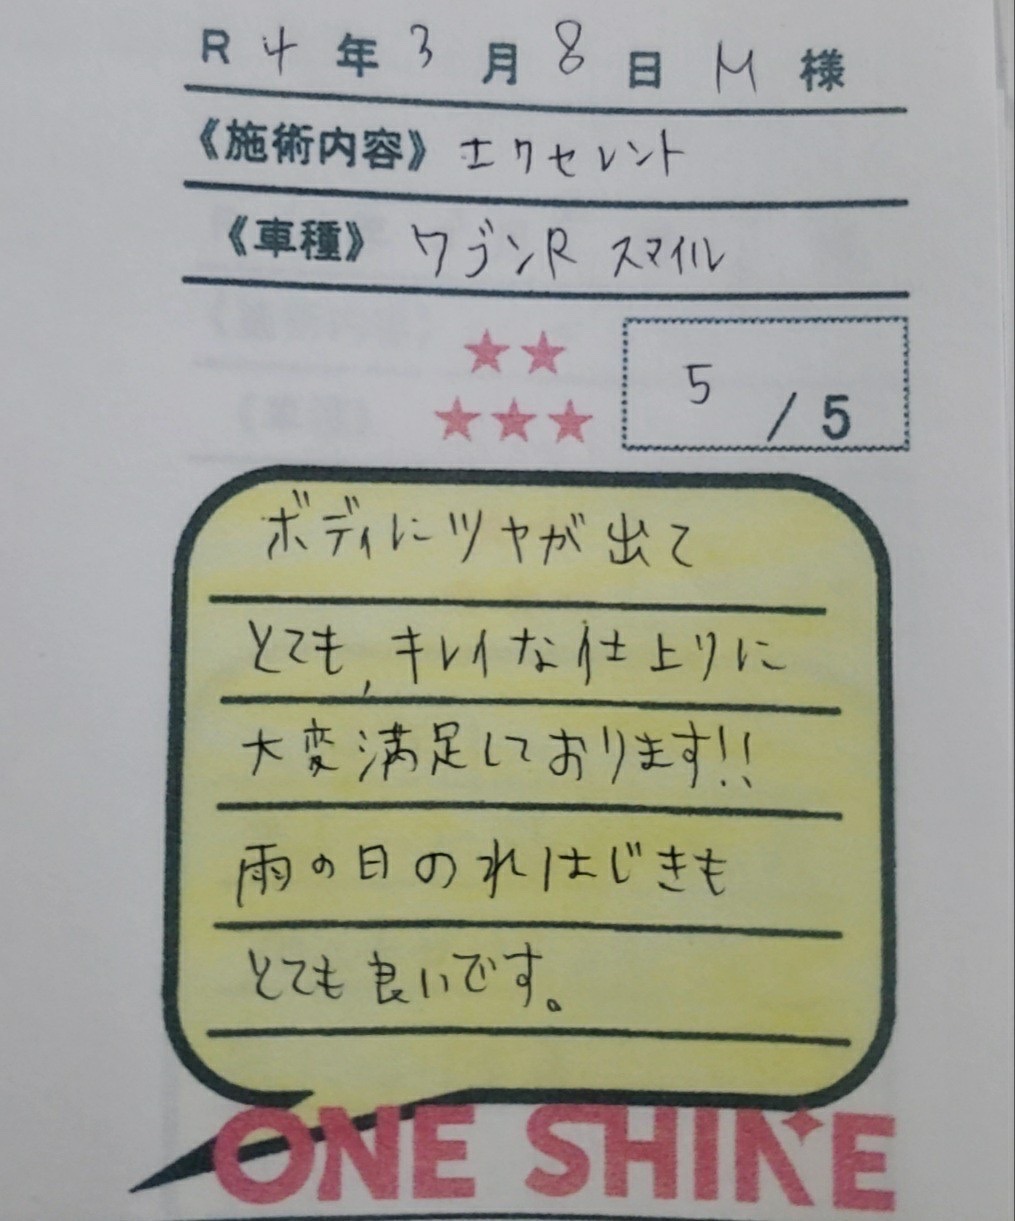 R 4 年 3 月 8 日 M 様
《施術内容》 エクセレント
《車種》 ワゴンR スマイル
5 / 5
ボディにツヤが出て
とても、キレイな仕上りに
大変満足しております!!
雨の日のれはじきも
とても良いです。
ONE SHINE